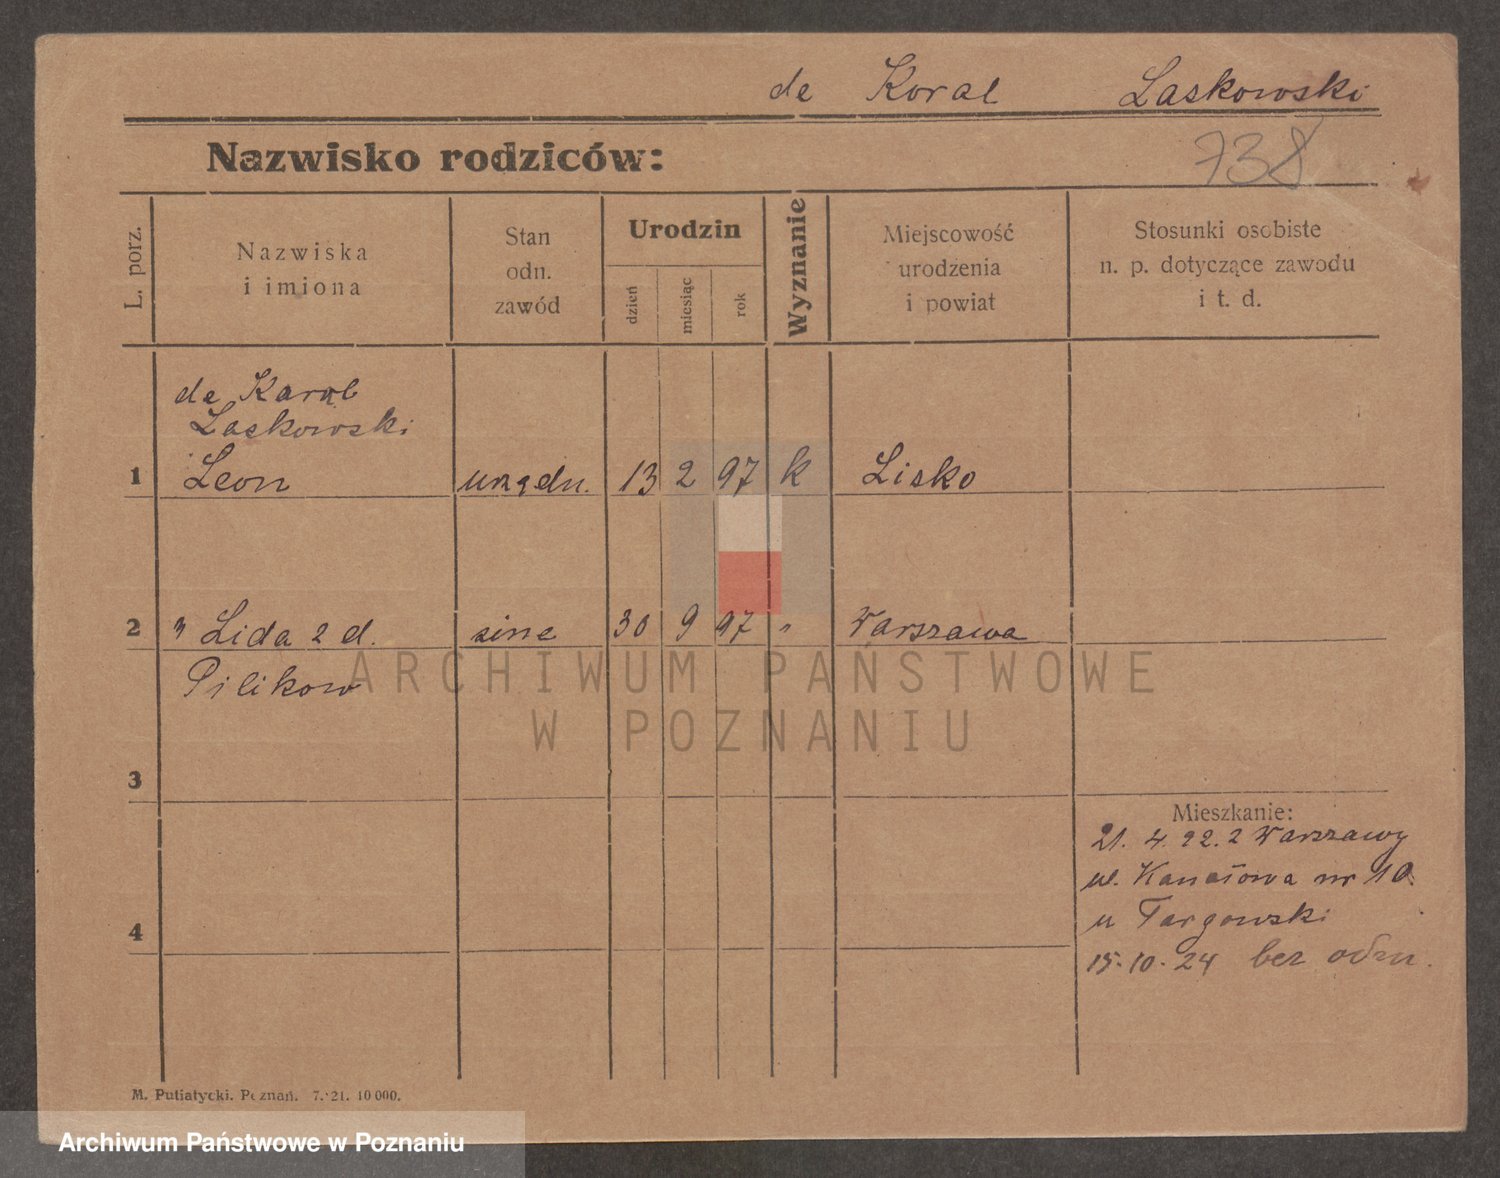 de Koral Laskowski
738
Nazwisko rodziców:
L. porz.
Nazwiska
i imiona
Stan
odn.
zawód
Urodzin
dzień
miesiąc
rok
Wyznanie
Miejscowość
urodzenia
i powiat
Stosunki osobiste
n. p. dotyczące zawodu
i t. d.
de Koral
Laskowski
1 Leon urzędn. 13 2 97 k Lisko
2 " Lida z d. 30 9 97 " Warszawa
Pilikow
ARCHIWUM PAŃSTWOWE
W POZNANIU
3
Mieszkanie:
21. 4. 22. z Warszawy
ul. Kanałowa nr 10
u Targowski
4
15-10-24 bez odm.
M. Putiatycki. Poznań. 7.'21. 10 000.
Archiwum Państwowe w Poznaniu